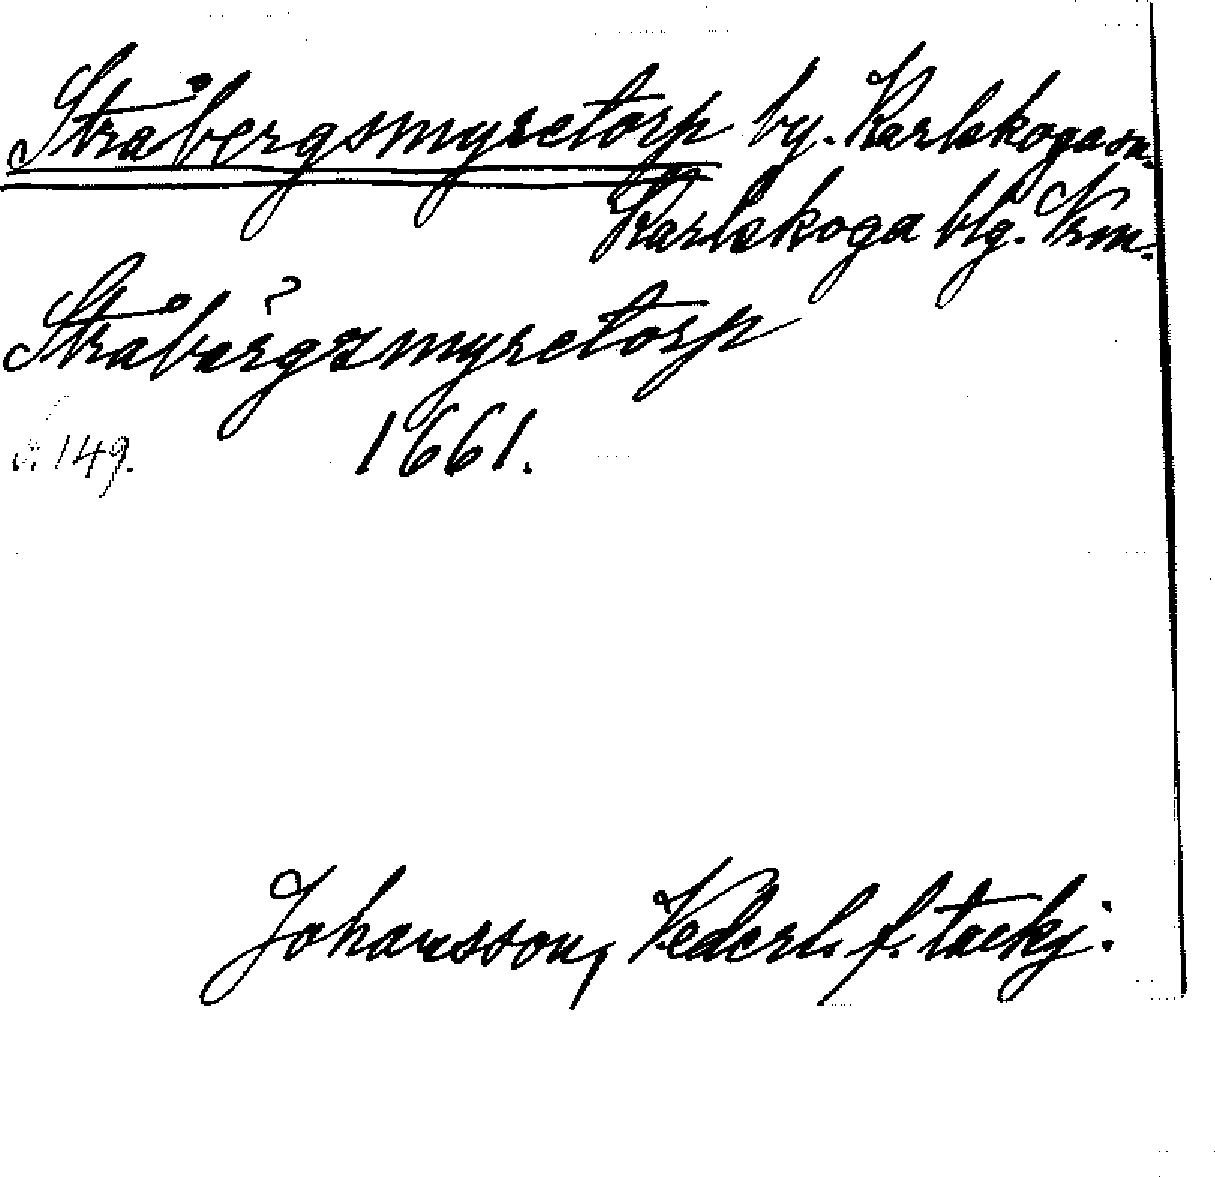 Stråbergsmyretorp by. Karlskoga sn.
Karlskoga blg. Vrm.
?
Stråbärgzmyretorp
s. 149. 1661.
Johansson, Vederl. f. tackj: